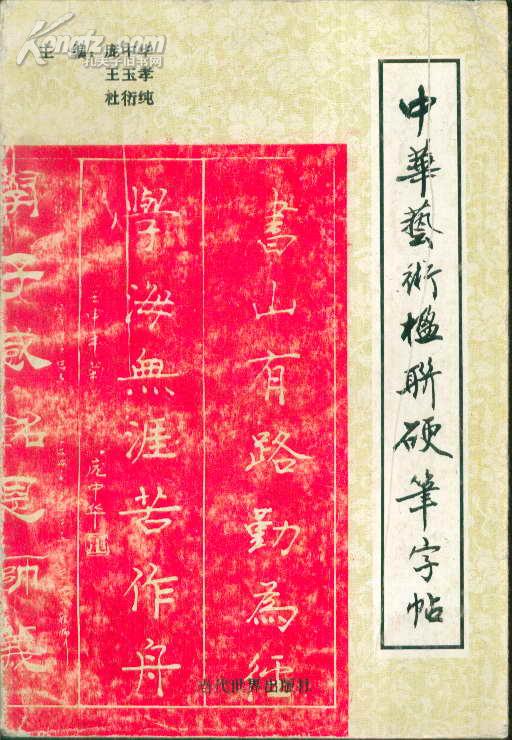 主 编：庞中华
王玉孝
杜衍纯
中華藝術楹聯硬筆字帖
書山有路勤為徑
學海無涯苦作舟
庞中华
当代世界出版社
孔夫子旧书网